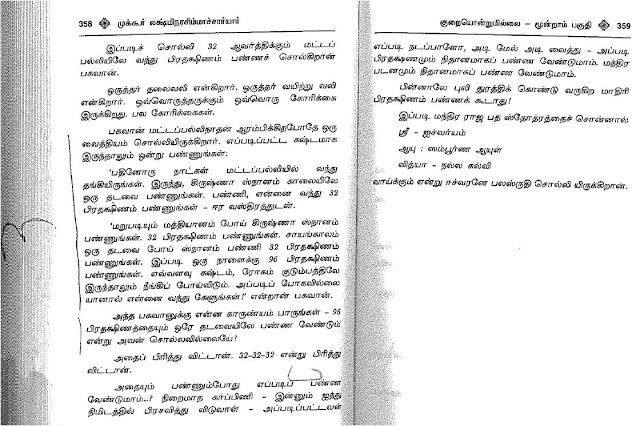 358 முக்கூர் லக்ஷ்மிநரசிம்மாச்சார்யார்
இப்படிச் சொல்லி 32 ஆவர்த்திக்கும் மட்டப்
பல்லியிலே வந்து பிரதக்ஷிணம் பண்ணச் சொல்கிறான்
பகவான்.
ஒருத்தர் தலைவலி என்கிறார். ஒருத்தர் வயிற்று வலி
என்கிறார். ஒவ்வொருத்தருக்கும் ஒவ்வொரு கோரிக்கை
இருக்கிறது. பல கோரிக்கைகள்.
பகவான் மட்டப்பல்லிநாதன் ஆரம்பிக்கிறபோதே ஒரு
வைத்தியம் சொல்லியிருக்கிறார். எப்படிப்பட்ட கஷ்டமாக
இருந்தாலும் ஒன்று பண்ணுங்கள்:
'பதினோரு நாட்கள் மட்டப்பல்லியில் வந்து
தங்கியிருங்கள். இருந்து, கிருஷ்ணா ஸ்நானம் காலையிலே
ஒரு தடவை பண்ணுங்கள். பண்ணி, என்னை வந்து 32
பிரதக்ஷிணம் பண்ணுங்கள் – ஈர வஸ்திரத்துடன்.
'மறுபடியும் மத்தியானம் போய் கிருஷ்ணா ஸ்நானம்
பண்ணுங்கள். 32 பிரதக்ஷிணம் பண்ணுங்கள். சாயங்காலம்
ஒரு தடவை போய் ஸ்நானம் பண்ணி 32 பிரதக்ஷிணம்
பண்ணுங்கள். இப்படி ஒரு நாளைக்கு 96 பிரதக்ஷிணம்
பண்ணுங்கள். எவ்வளவு கஷ்டம், ரோகம் குடும்பத்திலே
இருந்தாலும் நீங்கிப் போய்விடும். அப்படிப் போகவில்லை
யானால் என்னை வந்து கேளுங்கள்!' என்றான் பகவான்.
அந்த பகவானுக்கு என்ன காருண்யம் பாருங்கள் – 96
பிரதக்ஷிணத்தையும் ஒரே தடவையிலே பண்ண வேண்டும்
என்று அவன் சொல்லவில்லையே!
அதைப் பிரித்து விட்டான். 32-32-32 என்று பிரித்து
விட்டான்.
அதையும் பண்ணும்போது எப்படிப் பண்ண
வேண்டுமாம்..? நிறைமாத கர்ப்பிணி – இன்னும் ஐந்து
நிமிடத்தில் பிரசவித்து விடுவாள் – அப்படிப்பட்டவள்
குறையொன்றுமில்லை – மூன்றாம் பகுதி 359
எப்படி நடப்பாளோ, அடி மேல் அடி வைத்து – அப்படி
பிரதக்ஷணமும் நிதானமாகப் பண்ண வேண்டும். மந்திர
படனமும் நிதானமாகப் பண்ண வேண்டுமாம்.
பின்னாலே புலி துரத்திக் கொண்டு வருகிற மாதிரி
பிரதக்ஷிணம் பண்ணக் கூடாது!
இப்படி மந்திர ராஜ பத ஸ்தோத்ரத்தைச் சொன்னால்
ஸ்ரீ – ஐச்வர்யம்
ஆயு : ஸம்பூர்ண ஆயுள்
வித்யா – நல்ல கல்வி
வாய்க்கும் என்று ஈச்வரனே பலஸ்ருதி சொல்லி யிருக்கிறான்.